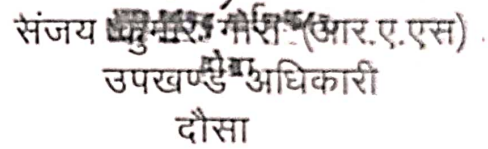 संजय कुमार गोरा (आर.ए.एस)
उपखण्ड अधिकारी
दौसा